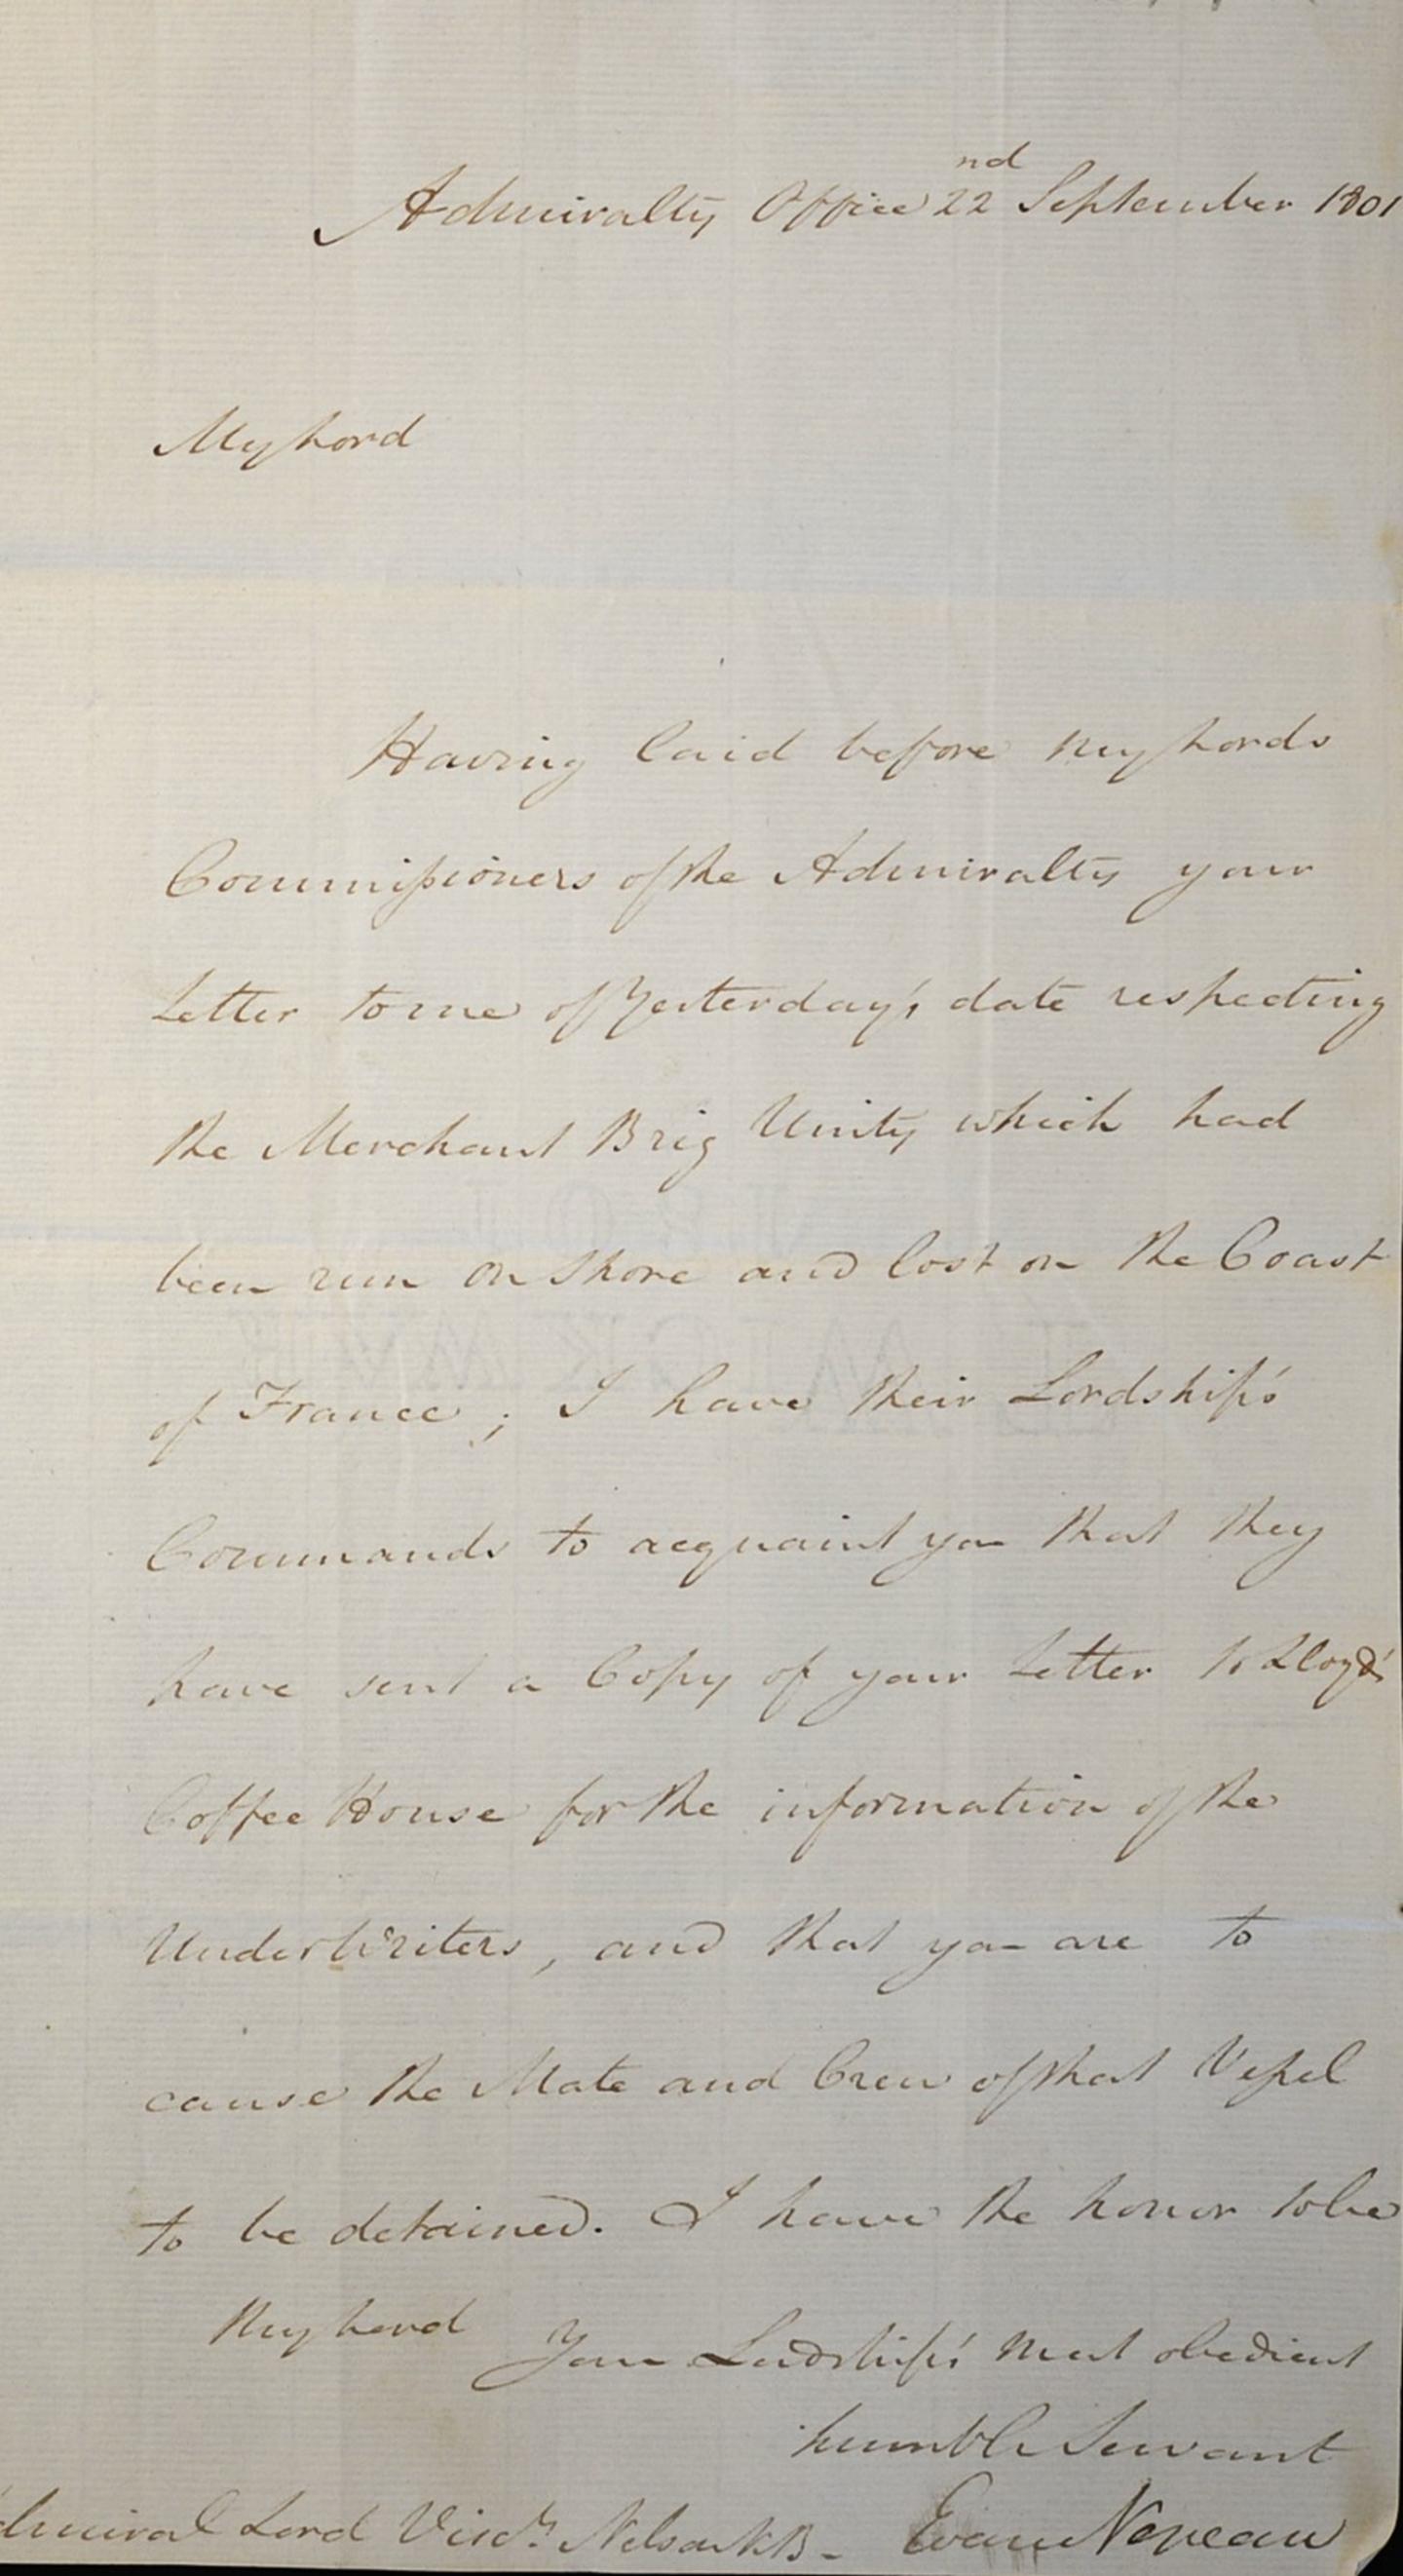 Admiralty Office 22nd September 1801
My Lord
Having laid before my Lords
Commissioners of the Admiralty your
Letter to me of Yesterday's date respecting
the Merchant Brig Unity which had
been run on Shore and lost on the Coast
of France; I have their Lordship's
Commands to acquaint you that they
have sent a Copy of your Letter to Lloyd's
Coffee House for the information of the
UnderWriters, and that you are to
cause the Mate and Crew of that Vessel
to be detained. I have the honor to be
My Lord
Your Lordship's most obedient
humble Servant
Admiral Lord Visct. Nelson KB - Evan Nepean